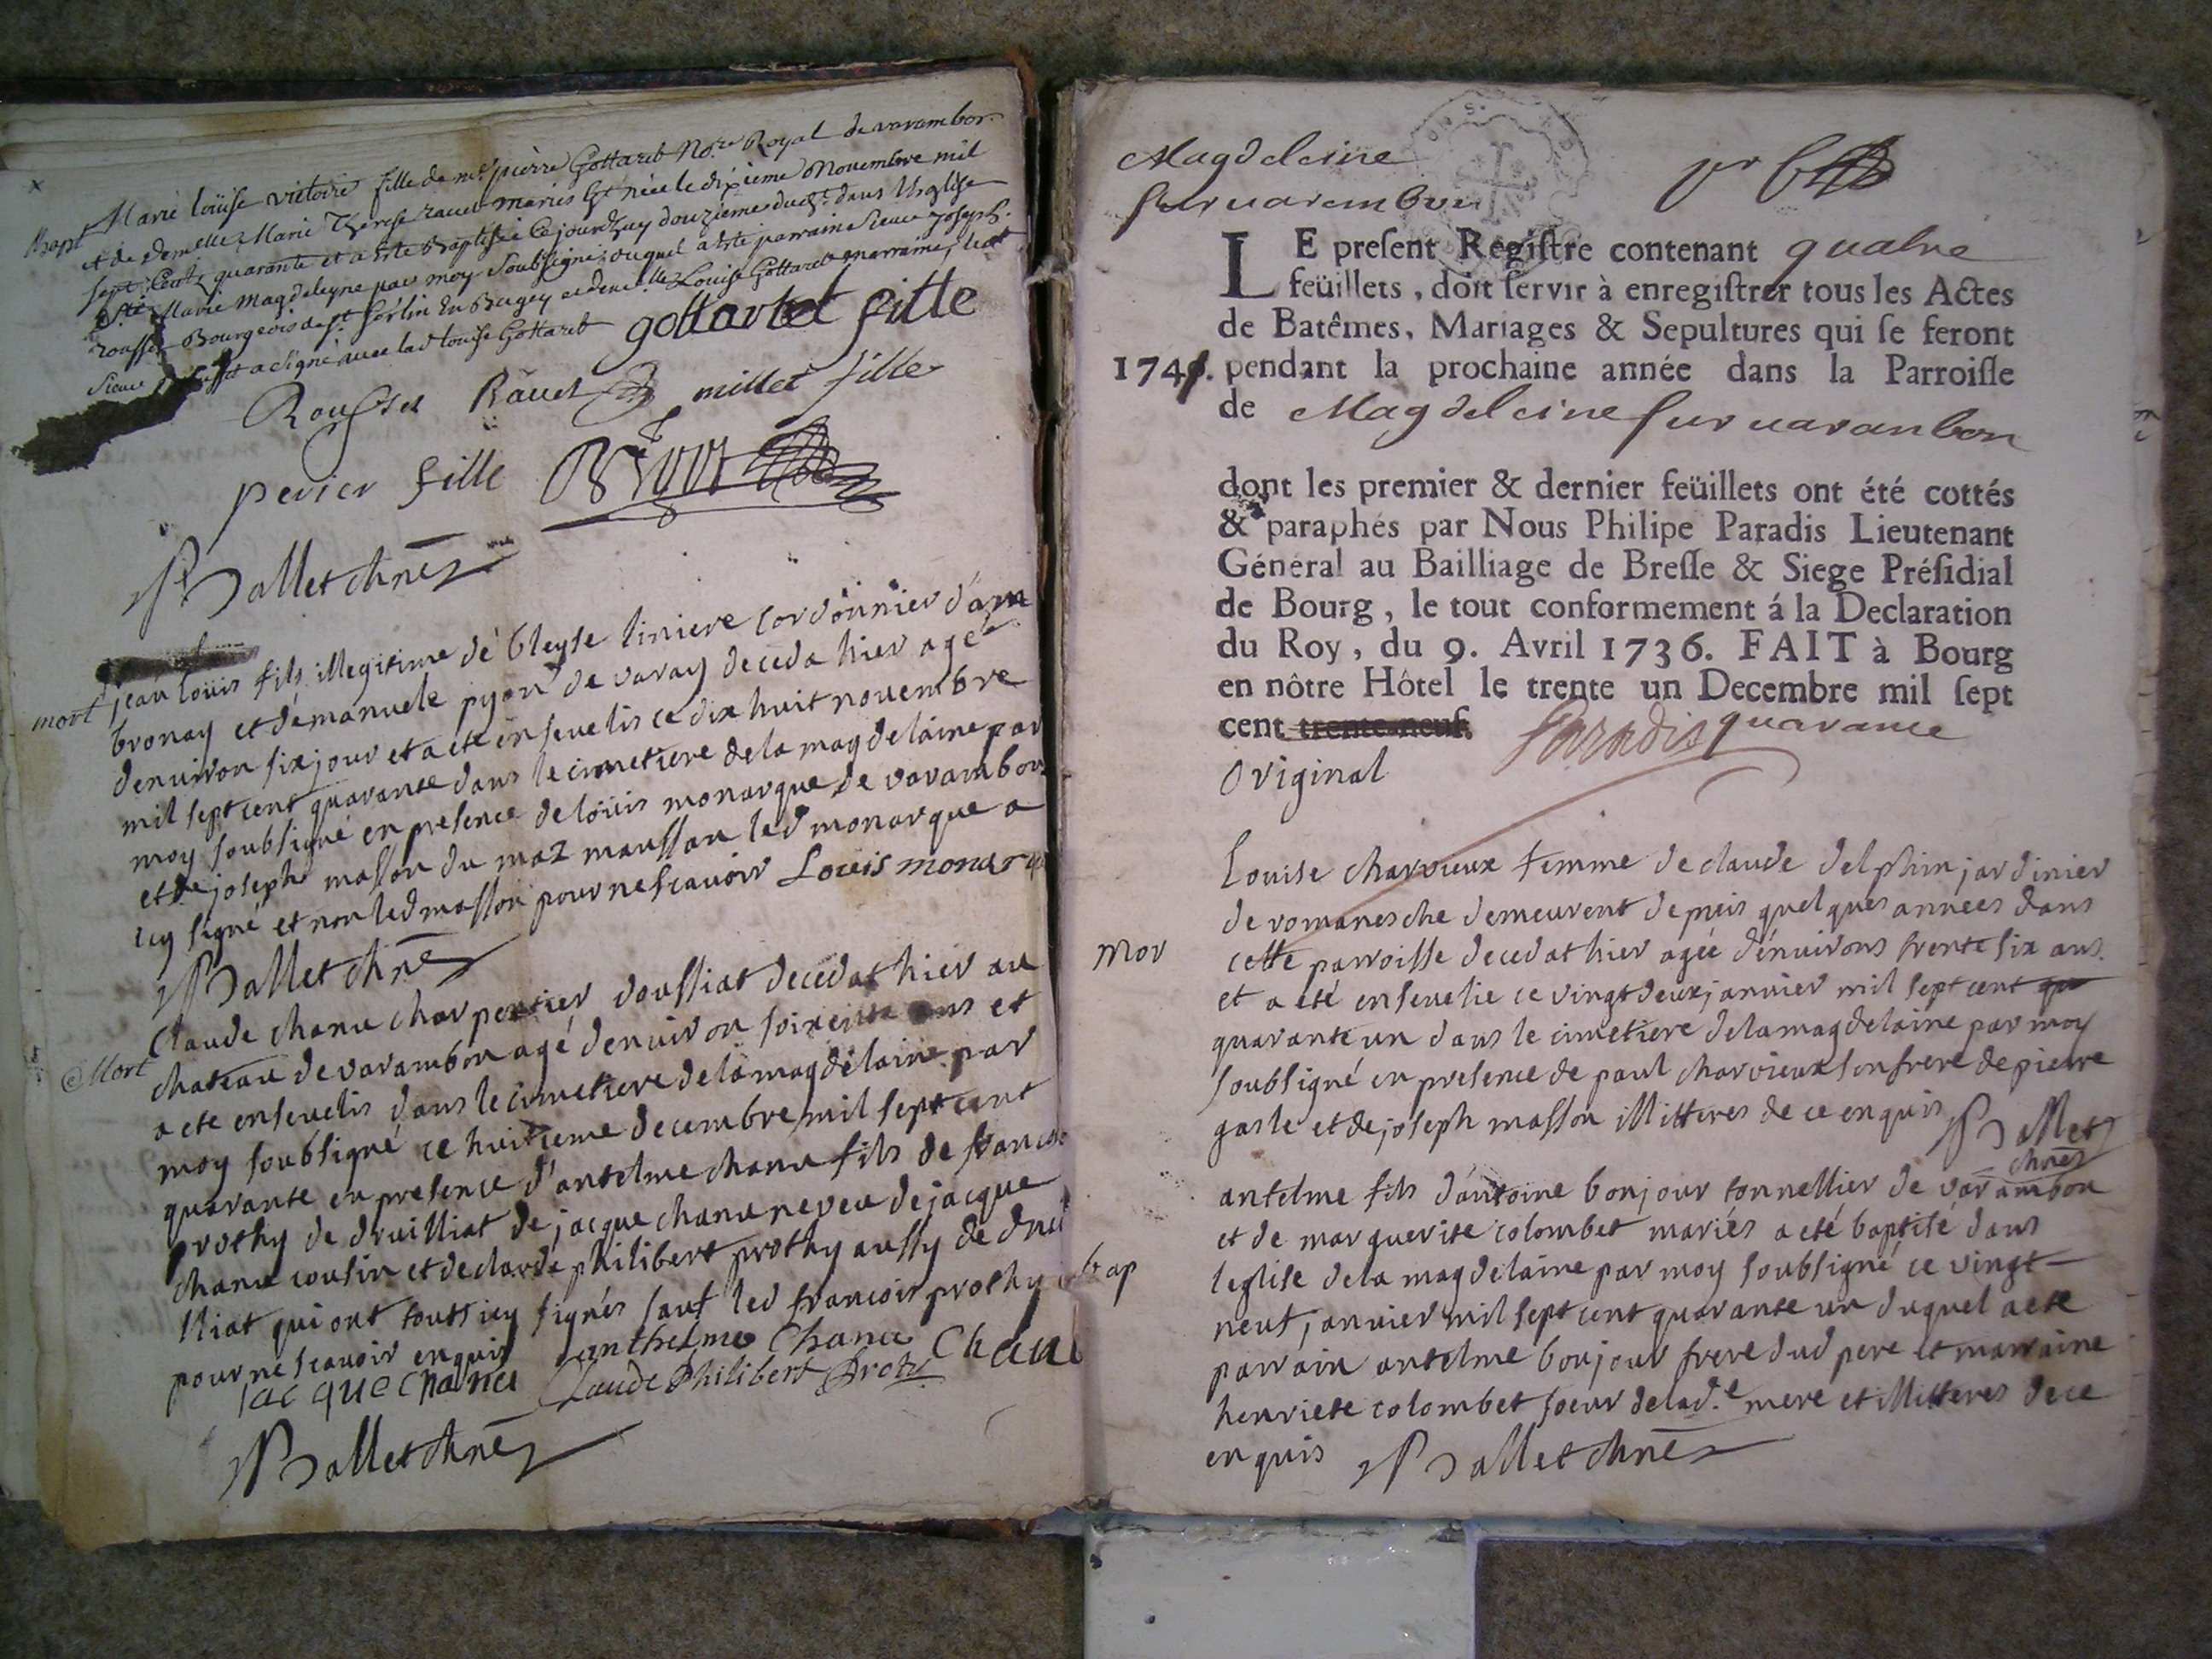 Bapt Marie loüise victoire fille de mre pierre Gottaret Nore Royal de varambon
et de demelle Marie Therese ravet mariés Est née le dixieme Novembre mil
sept Cent quarante et a esté Baptisée Ce jourdhuy douzieme dud. dans L'Eglise
Ste Marie magdeleyne par moy Soubsigné, duquel a esté parrain Sieur joseph
rousset Bourgeois de st Sorlin En Bugey et demlle Louise Gottaret marraine, led
Sieur rousset a signé avec lad louise Gottaret gottartet fille
Rousset Ravet millet fille
perier fille
Ballet chne
mort jean loüis fils illegitime de bleyse liniere cordonnier dam
bronay et demanuele pyon de varay deceda hier agé
denuiron six jour et a ete enseuelis ce dix huit nouembre
mil sept cent quarante dans le cimetiere dela magdelaine par
moy soubsigné en presence de loüis monarque de varambon
et de joseph masson du maz mausson led monarque a
icy signé et non led masson pour ne scauoir Louis monarq
Ballet chne
Claude chanu charpentier doussiat decedat hier au
Mort chateau de varambon agé denuiron soixente ans et
a ete enseuelis dans le cimetiere dela magdelaine par
moy soubsigné ce huitieme decembre mil sept cent
quarante en presence d'antelme chanu fils de francois
prothy de druilliat de jacque chanu neveu de jacque
chanu cousin et de claude philibert prothy aussy de drui
lliat qui ont touts icy signés sauf led francois prothy
pour ne scavoir enquis anthelme Chanu Chanu
jacque chanu Claude Philibert Proty
Ballet chne
Magdeleine
sur uarembon
LE present Registre contenant quatre
feüillets, doit servir à enregistrer tous les Actes
de Batêmes, Mariages & Sepultures qui se feront
1741. pendant la prochaine année dans la Parroisse
de Magdeleine sur uaranbon
dont les premier & dernier feüillets ont été cottés
& paraphés par Nous Philipe Paradis Lieutenant
Général au Bailliage de Bresse & Siege Présidial
de Bourg, le tout conformement á la Declaration
du Roy, du 9. Avril 1736. FAIT à Bourg
en nôtre Hôtel le trente un Decembre mil sept
cent trente-neuf. Paradis quarante
Original
Louise charvieux femme de claude delphin jardinier
de romanesche demeurent depuis quelques années dans
mor cette parroisse decedat hier agée dénuirons trente six ans
et a eté enseuelie ce vingt deux janvier mil sept cent qu
quarante un dans le cimetiere dela magdelaine par moy
soubsigné en presence de paul charvieux son frere de pierre
gasle et de joseph masson illitteres de ce enquis Ballet
chne
antelme fils dantoine bonjour tonnellier de varambon
et de marguerite colombet mariés a eté baptisé dans
bap leglise dela magdelaine par moy soubsigné ce vingt
neuf janvier mil sept cent quarante un duquel a ete
parrain antelme bonjour frere dud pere et marraine
henriete colombet soeur delad.e mere et illitteres de ce
enquis Ballet chne